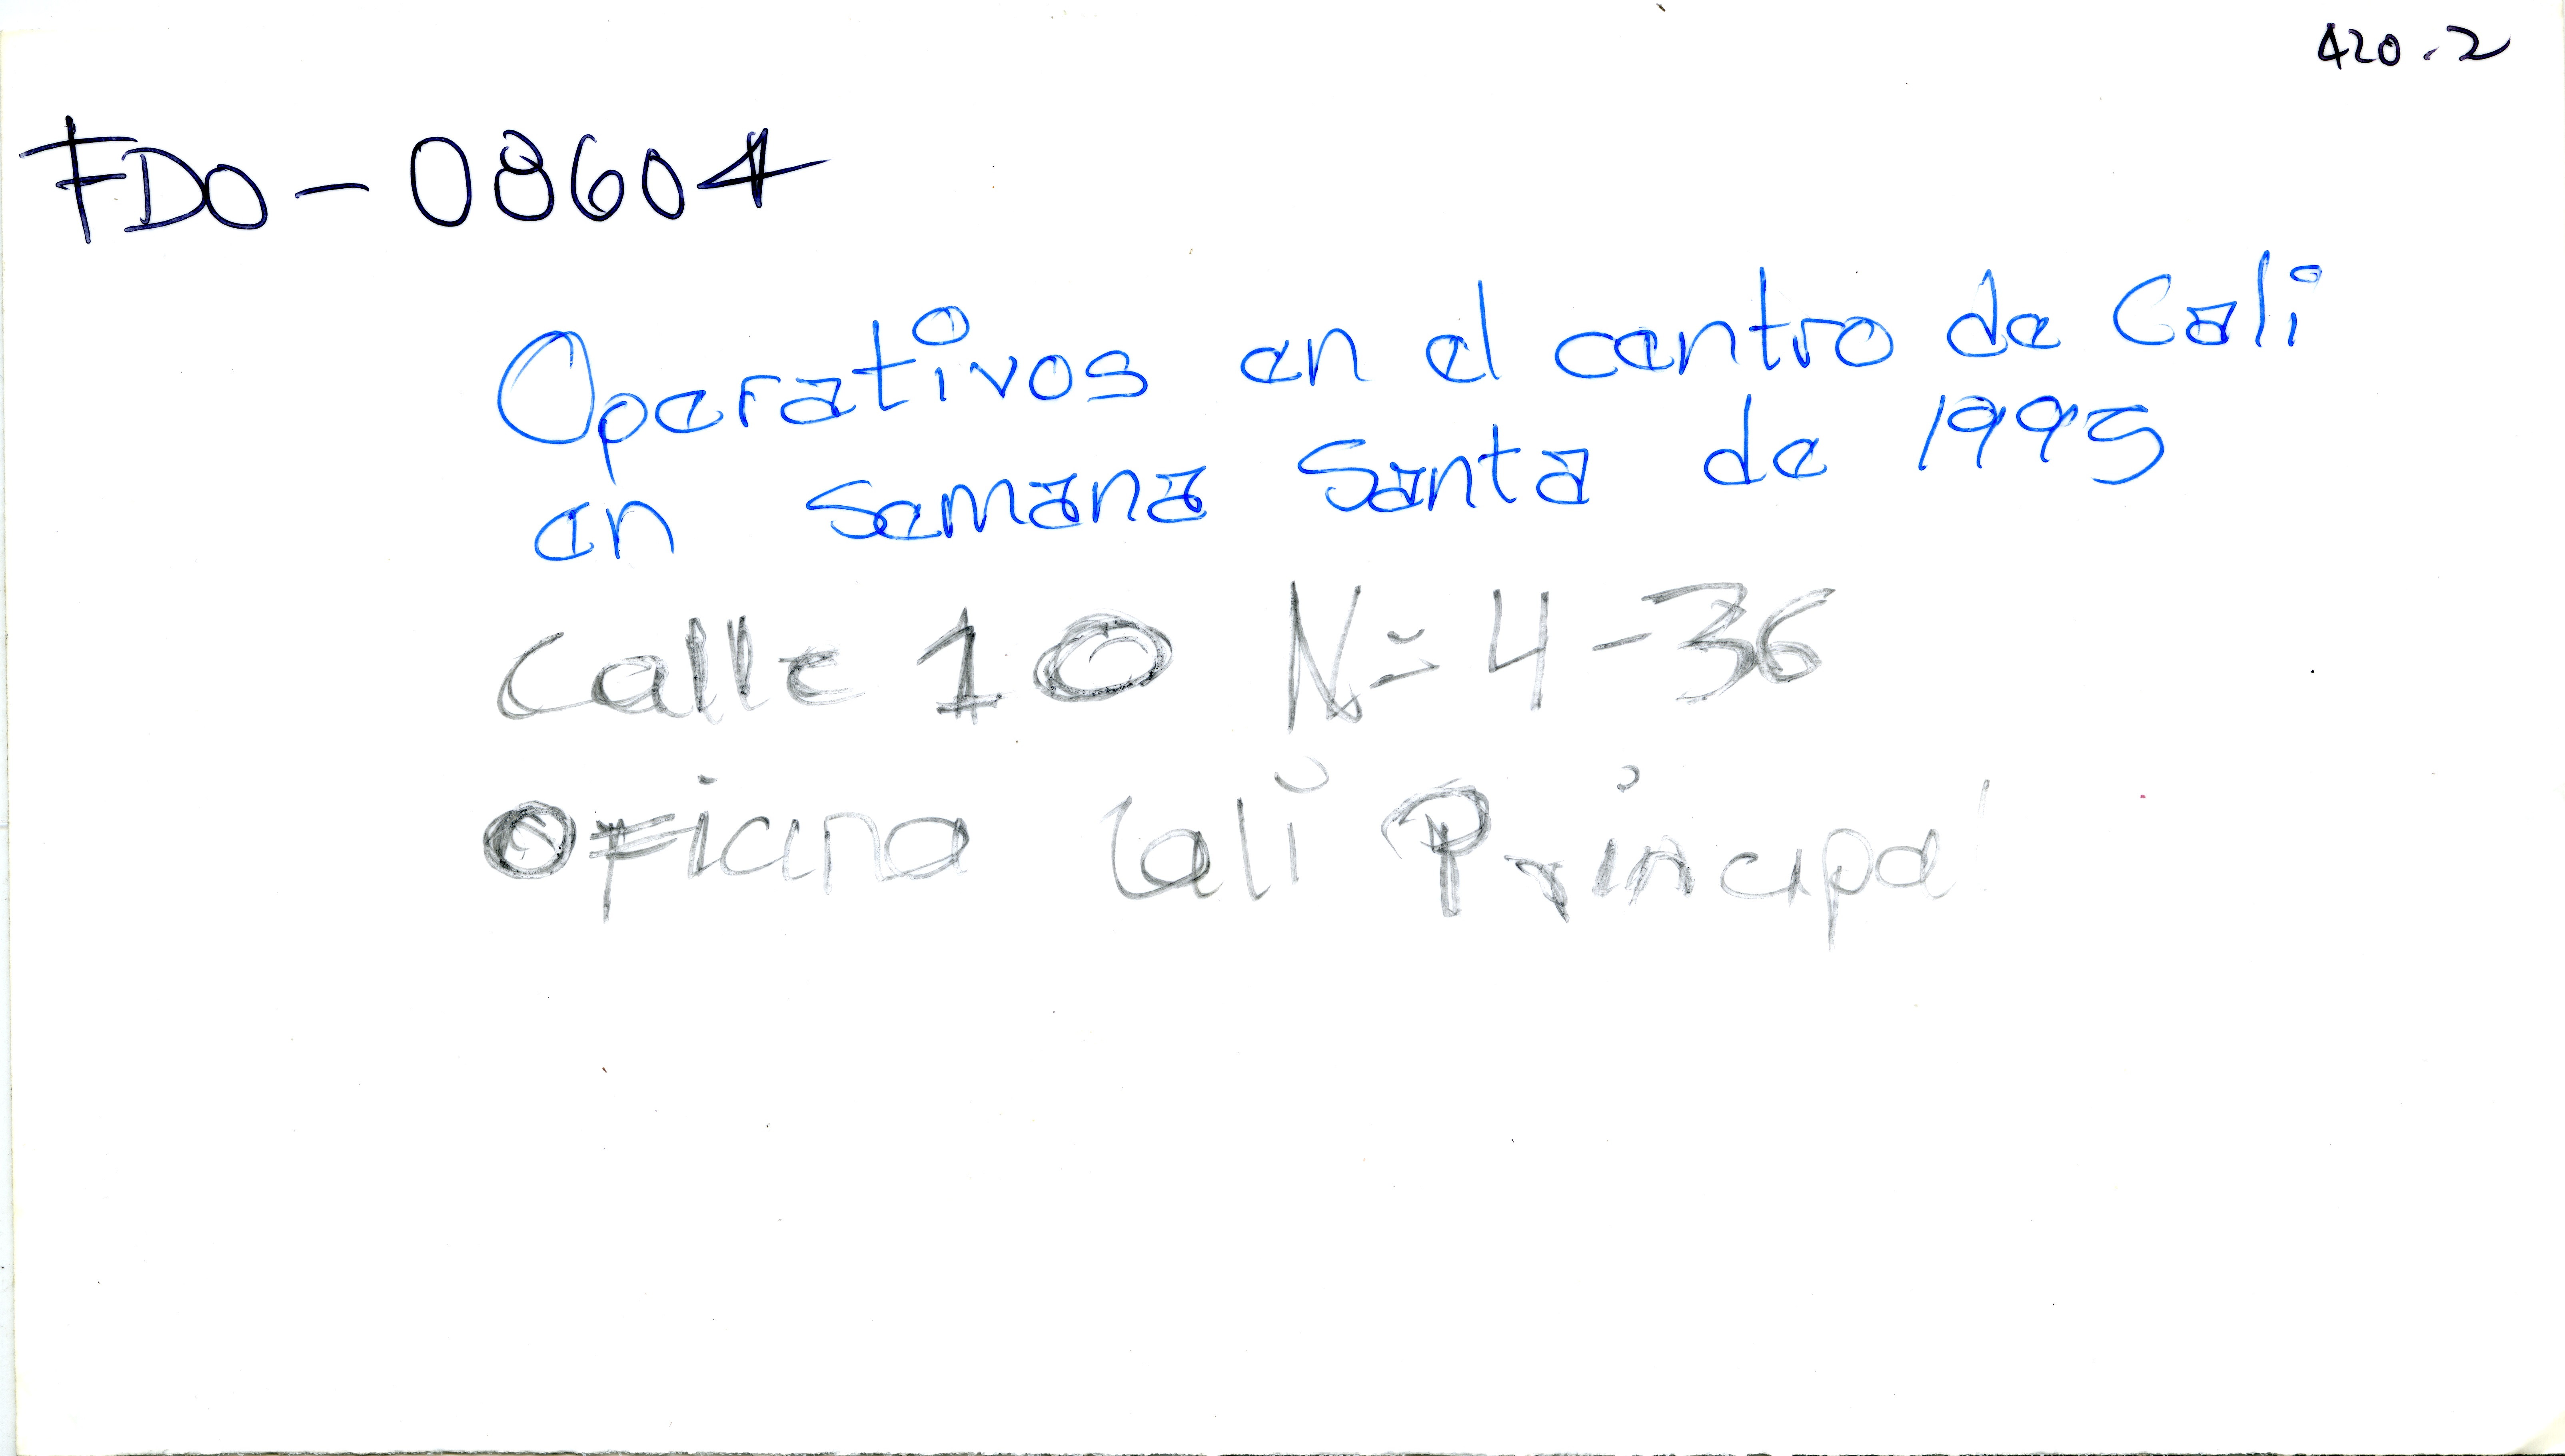 420.2
FDO-08604
Operativos en el centro de Cali
en semana Santa de 1995
Calle 10 N= 4-36
Oficina Cali Principal